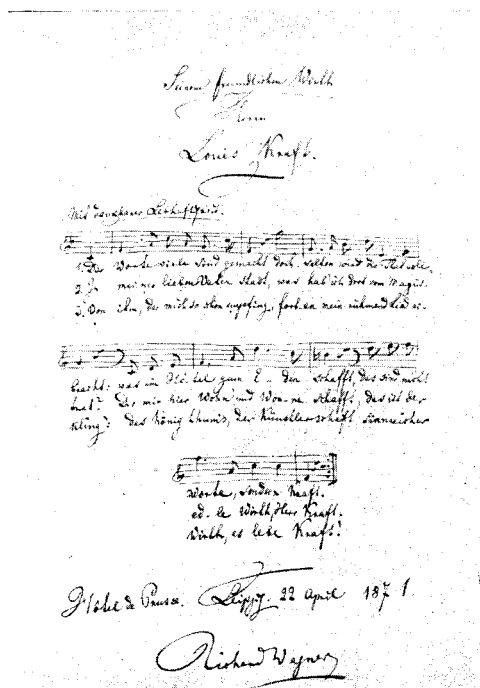 Seinem freundlichen Wirth
Herrn
Louis Kraft.
Mit dankbarer
1. Der Worte viele sind gemacht doch selten wird die That voll-
2. In meines lieben Vaters Stadt, was hab' ich dort vom Magist-
3. Von ihm, der mich so schön empfing, fortan mein rühmend Lied er-
bracht: was im Hôtel zum E-den schafft, das sind nicht
rat? Der mir hier Wohn und Won-ne schafft, das ist der
kling': des König thum's, der Künstlerschaft sinnreicher
Worte, sondern Kraft.
ed-le Wirth, Herr Kraft.
Wirth, es lebe Kraft!
Hôtel de Prusse. Leipzig. 22 April 1871.
Richard Wagner